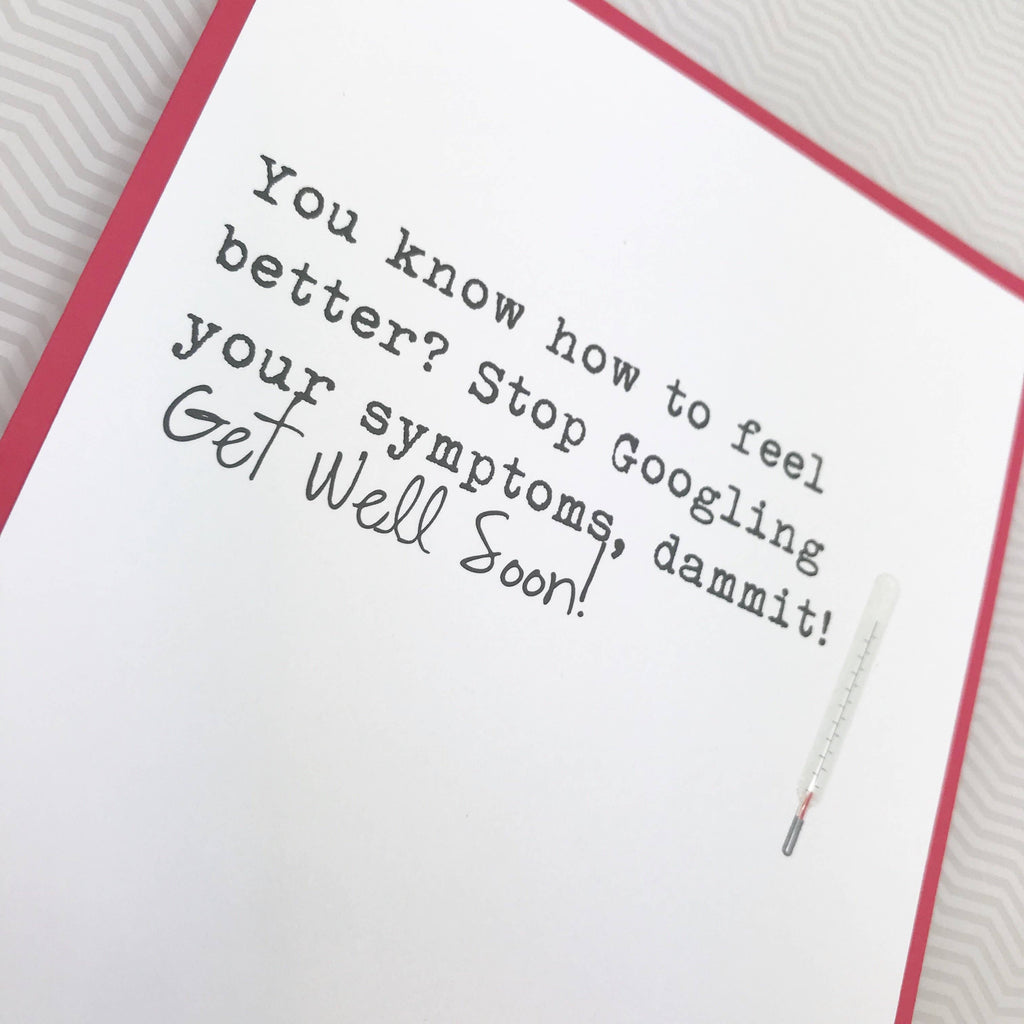 You know how to feel
better? Stop Googling
your symptoms, dammit!
Get Well Soon!